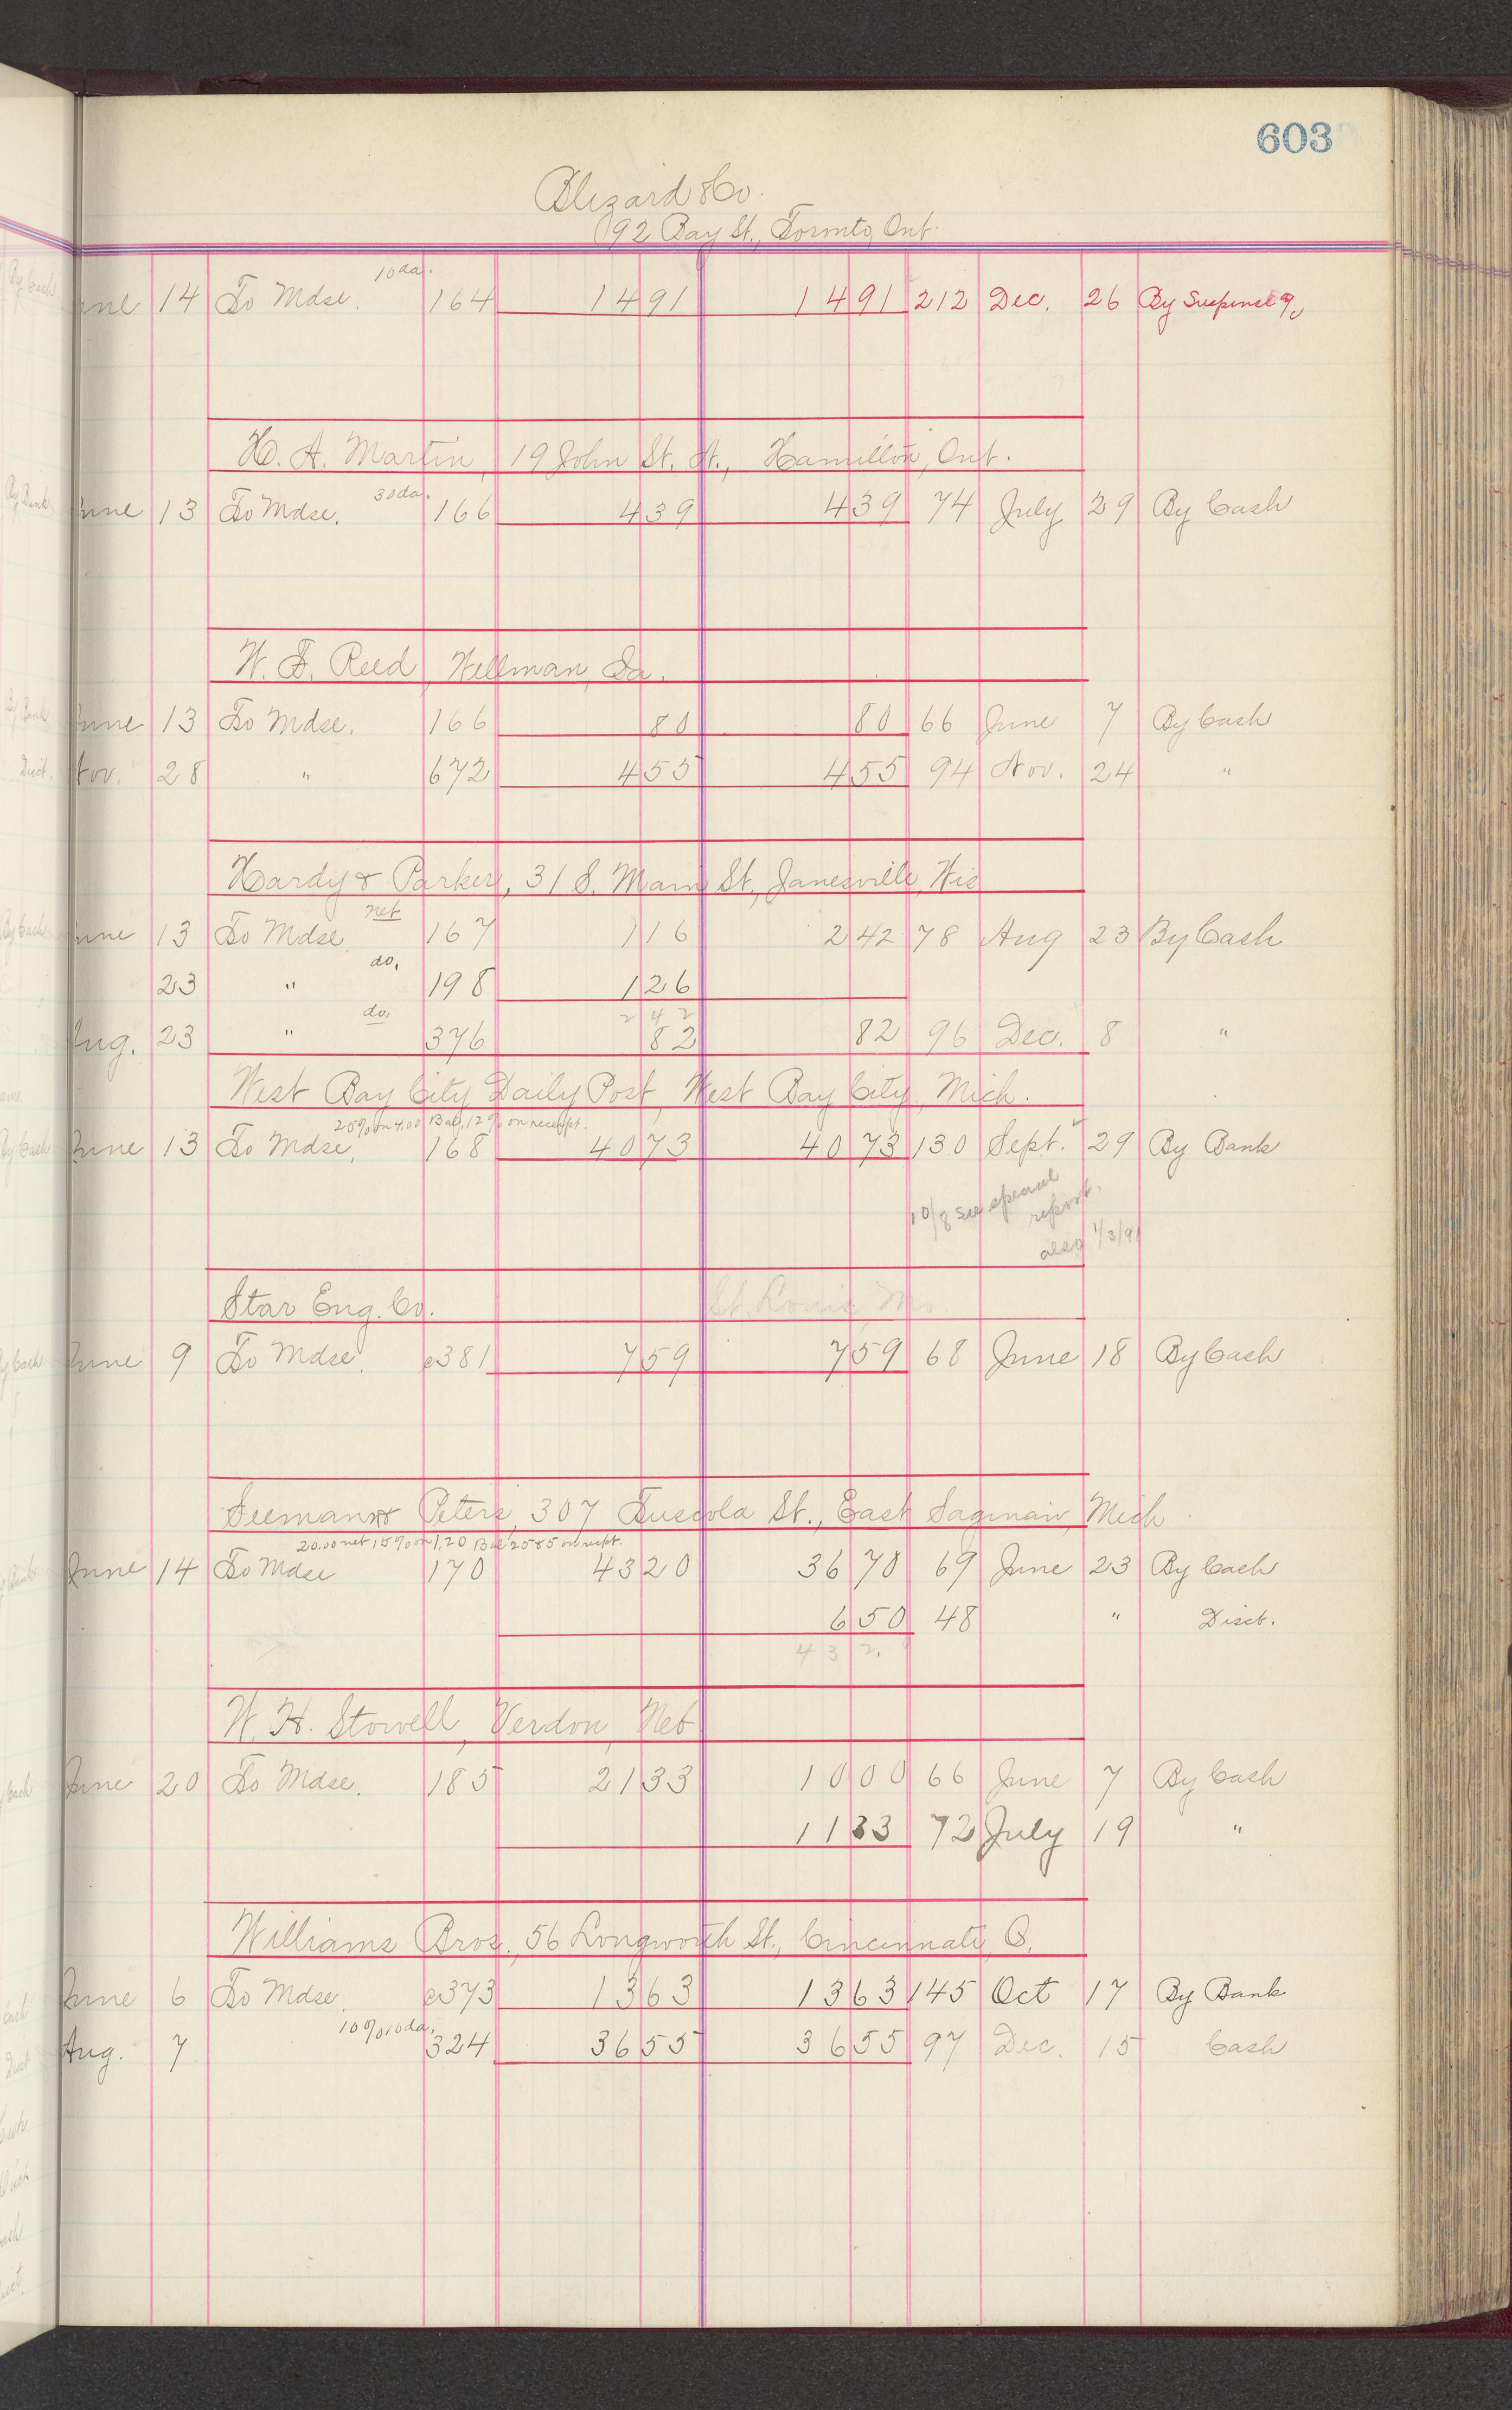 603
Blizard & Co.
92 Bay St., Toronto, Ont.
10 da.
June 14 To Mdse. 164 14 91 14 91 212 Dec. 26 By Suspense a/c
H. A. Martin, 19 John St. N., Hamilton, Ont.
30 da.
June 13 To Mdse. 166 4 39 4 39 74 July 29 By Cash
W. F. Reed, Wellman, Ia.
June 13 To Mdse. 166 80 80 66 June 7 By Cash
Nov. 28 " 672 4 55 4 55 94 Nov. 24 "
Hardy & Parker, 31 S. Main St., Janesville, Wis
net
June 13 To Mdse 167 1 16 2 42 78 Aug 23 By Cash
do.
23 " 198 1 26
2 42
do.
Aug. 23 " 376 82 82 96 Dec. 8 "
West Bay City Daily Post, West Bay City, Mich.
25% on 4.00 Bal, 12% on receipt.
June 13 To Mdse. 168 40 73 40 73 130 Sept. 29 By Bank
10/8 see special
report.
1/3/91
Star Eng. Co. St. Louis Mo.
June 9 To Mdse. e381 7 59 7 59 68 June 18 By Cash
Seemann & Peters, 307 Tuscola St., East Saginaw, Mich
20.00 net 15% on 1.20 Bal 25&5 on rcpt.
June 14 To Mdse 170 43 20 36 70 69 June 23 By Cash
6 50 48 " Disct.
43 2.
W. H. Stowell, Verdon, Neb
June 20 To Mdse. 185 21 33 10 00 66 June 7 By Cash
11 33 72 July 19 "
Williams Bros., 56 Longworth St., Cincinnati, O.
June 6 To Mdse. e373 13 63 13 63 145 Oct 17 By Bank
10% 10 da.
Aug. 7 324 36 55 36 55 97 Dec. 15 Cash